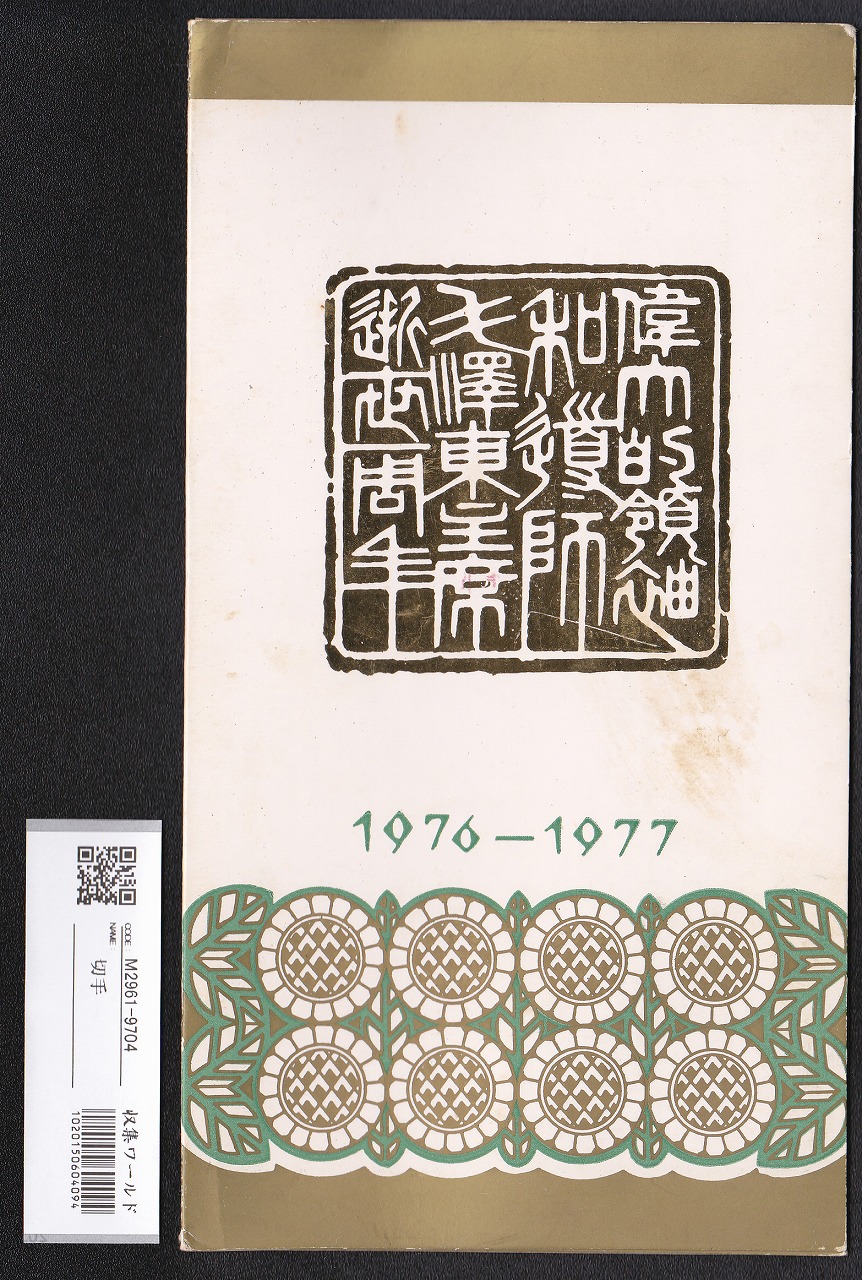 偉大的領袖
和導師
毛澤東主席
逝世周年
1976-1977
CODE: M2961-9704
NAME: 切手
収集ワールド
1020150604094